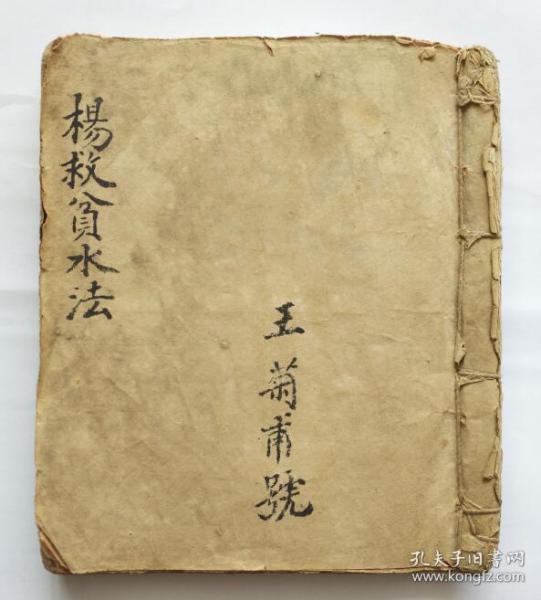 楊救貧水法
王菊甫號
孔夫子旧书网
www.kongfz.com